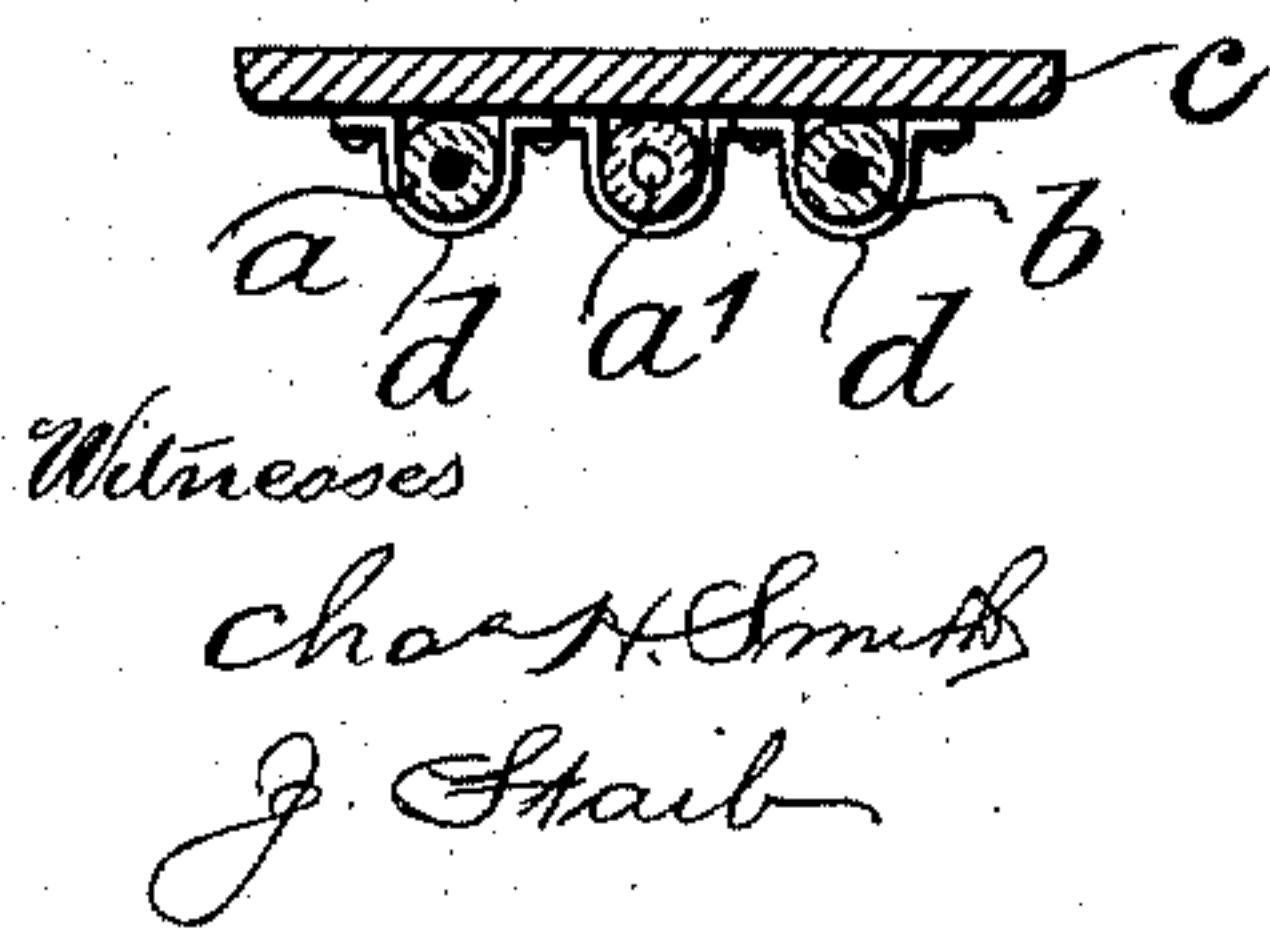 c
a b
d a1 d
Witnesses
Chas H. Smith
J. Staib